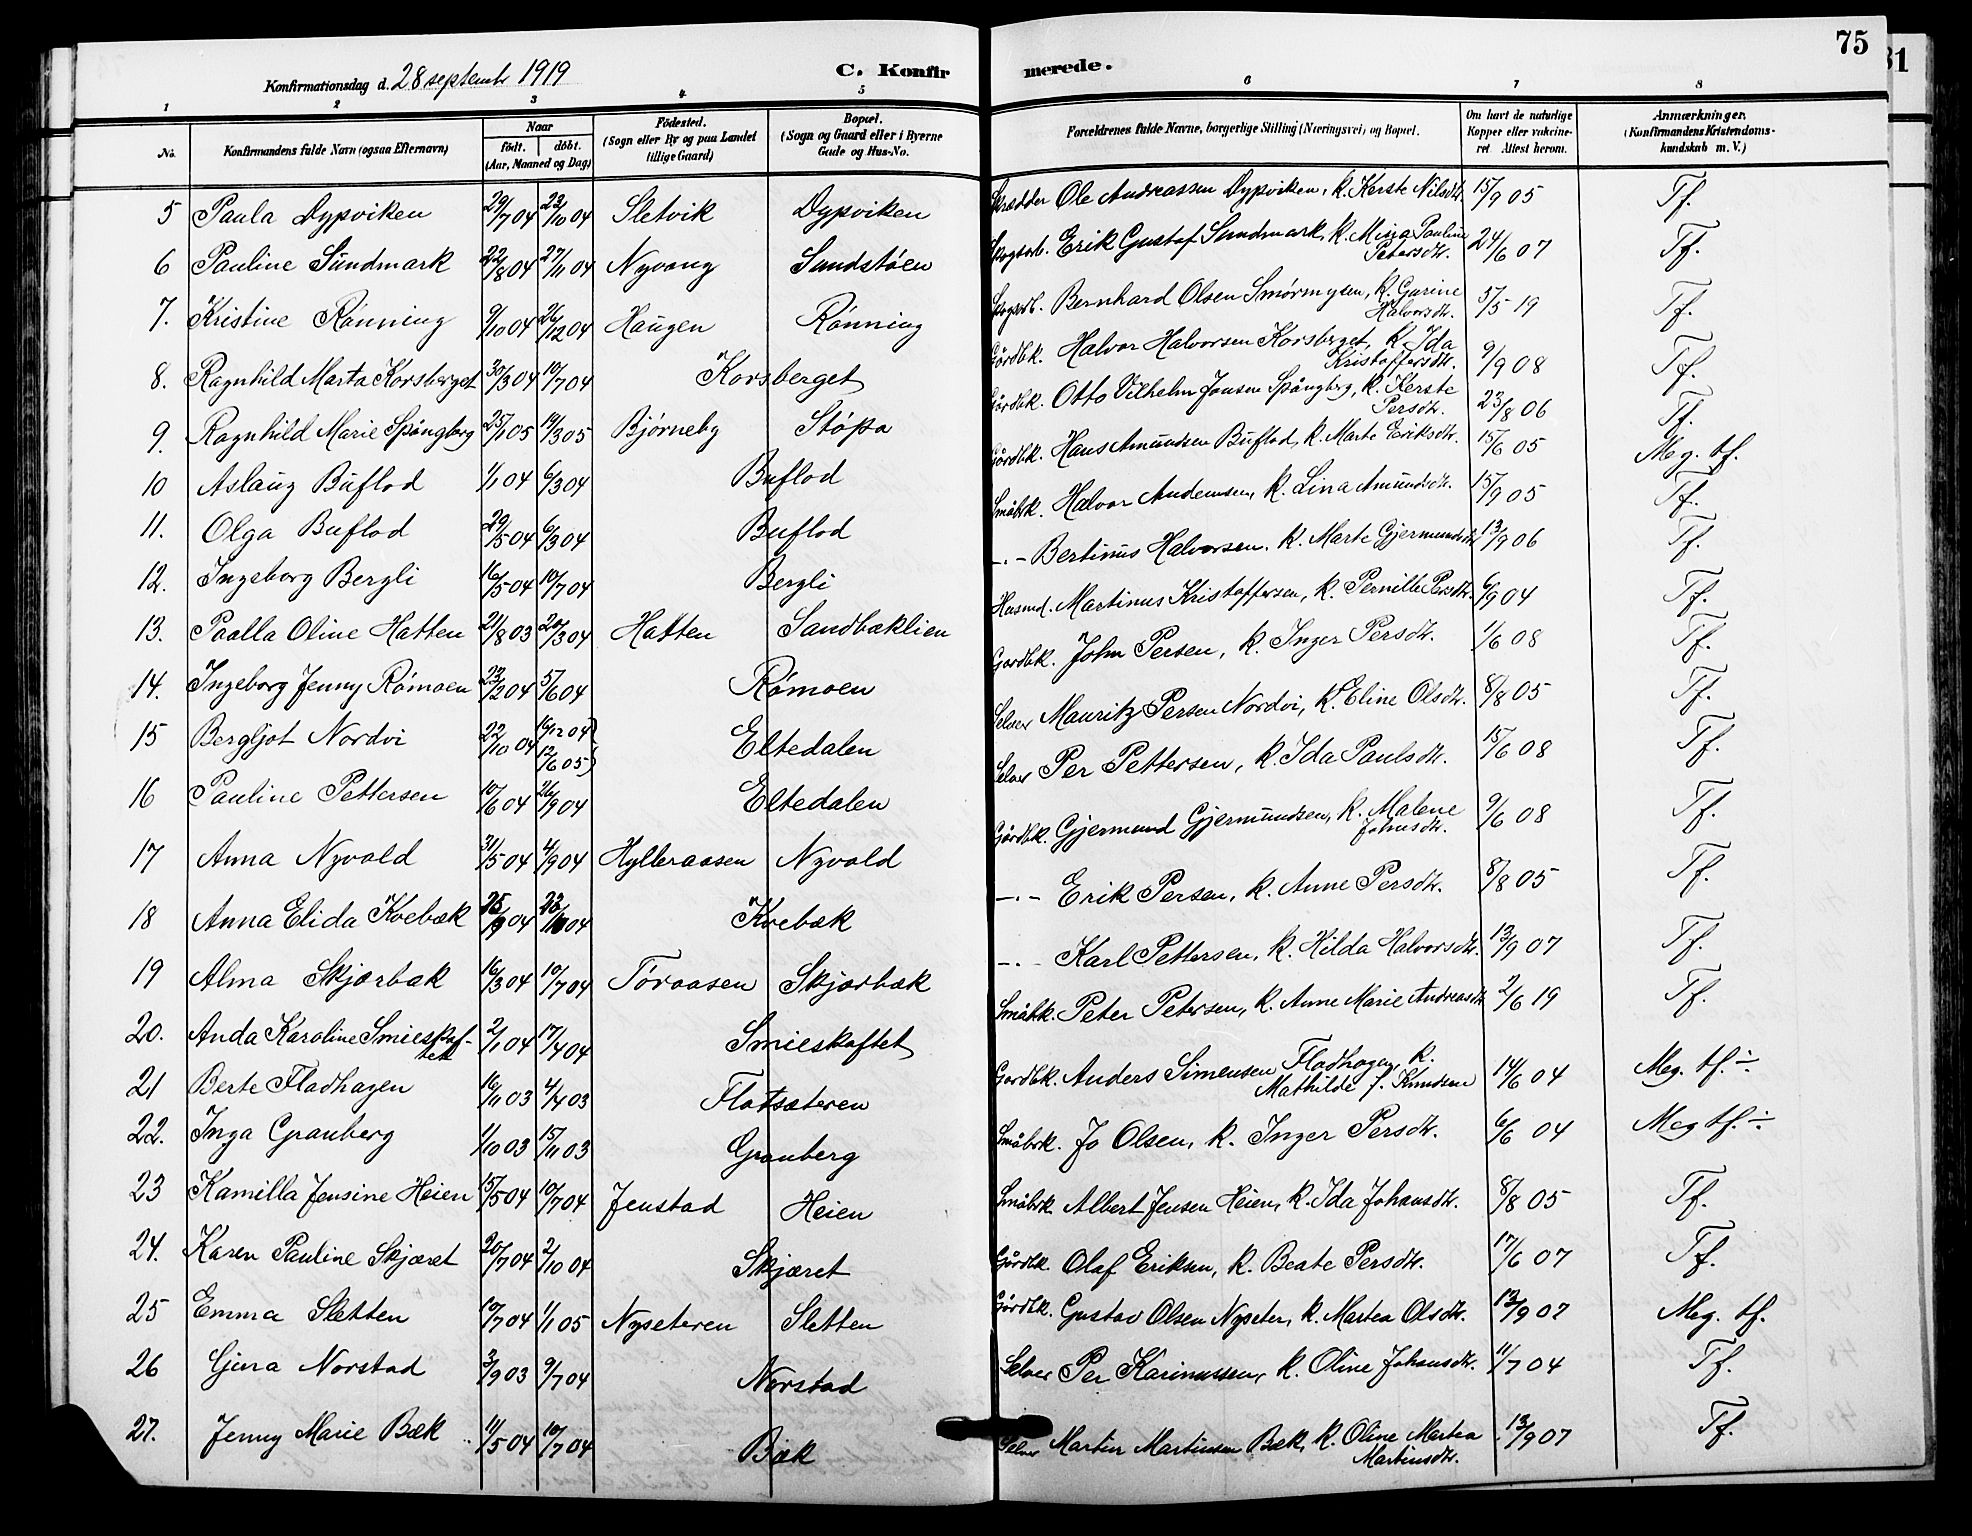 75
31
Konfirmationsdag d. 28 septembr 1919
C. Konfir merede.
1 2 3 4 5 6 7 8
No.
Konfirmandens fulde Navn (ogsaa Efternavn)
Naar
födt. döbt.
(Aar, Maaned og Dag)
Födested.
(Sogn eller By og paa Landet
tillige Gaard)
Bopæl.
(Sogn og Gaard eller i Byerne
Gade og Hus-No.
Forældrenes fulde Navne, borgerlige Stilling (Næringsvei) og Bopæl.
Om havt de naturlige
Kopper eller vakcine-
ret Attest herom.
Anmærkninger,
(Konfirmandens Kristendoms-
kundskab m. V.)
5 Paula Dypviken 29/7 04 22/10 04 Sletvik Dypviken Skrædder Ole Andreassen Dypviken, k. Kerste Nilsdtr. 15/9 05 Tf.
6 Pauline Sundmark 22/8 04 27/11 04 Nyvang Sandstöen Skogsarb. Erik Gustaf Sundmark, k. Mina Pauline
Petersdtr. 24/6 07 Tf.
7. Kristine Rönning 9/10 04 26/12 04 Haugen Rönning Bernhard Olsen Smörmysen, k. Gurine
Halvorsdtr. 5/5 19 Tf.
8. Ragnhild Marta Korsberget 30/3 04 10/7 04 Korsberget Gårdbk. Halvor Halvorsen Korsberget, k. Ida
Kristoffersdtr. 9/9 08 Tf.
9. Ragnhild Marie Spångberg 25/1 05 19/3 05 Bjørneby Stöpa Gårdbk. Otto Vilhelm Jonsen Spångberg, k. Kerste
Persdtr. 23/8 06 Tf.
10 Aslaug Buflod 1/1 04 6/3 04 Buflod Gårdbk. Hans Amundsen Buflod, k. Marte Eriksdtr. 15/6 05 Meg. tf.
11. Olga Buflod 29/5 04 6/3 04 Buflod Småbk. Halvor Andersen, k. Lina Amundsdtr. 15/9 05 Tf.
12. Ingeborg Bergli 16/5 04 10/7 04 Bergli -.- Bertinus Halvorsen. k. Marte Gjermundsdtr. 13/9 06 Tf.
13. Paalla Oline Hatten 21/8 03 20/3 04 Hatten Sandbæklien Husmd. Martinus Kristoffersen, k. Pernille Persdtr. 6/9 04 Tf.
14. Ingeborg Jenny Römoen 23/2 04 5/6 04 Römoen Gardbk. John Persen, k. Inger Persdtr. 1/6 08 Tf.
15 Bergljot Nordvi 22/10 04 16/12 04)
12/6 05) Eltedalen Selver Mauritz Persen Nordvi, k. Eline Olsdtr. 8/8 05 Tf.
16 Pauline Pettersen 10/6 04 26/9 04 Eltedalen Selver Per Pettersen, k. Ida Paulsdtr. 15/6 08 Tf.
17 Anna Nyvold 31/5 04 4/9 04 Hylleraasen Nyvold Gårdbk. Gjermund Gjermundsen, k. Malene
Johnsdtr. 9/6 08 Tf.
18 Anna Elida Kvebæk 25/9 04 23/10 04 Kvebæk -.- Erik Persen, k. Anne Persdtr. 8/8 05 Tf.
19 Alma Skjærbæk 16/3 04 10/7 04 Töraasen Skjærbæk -.- Karl Pettersen, k. Hilda Halvorsdtr. 13/9 07 Tf.
20. Anda Karoline Smieskaf-
tet 2/1 04 17/4 04 Smieskaftet Småbk. Peter Petersen, k. Anne Marie Andreasdtr. 2/6 19 Tf.
21 Berte Fladhagen 16/11 03 4/4 03 Flatsæteren Gardbk. Anders Simensen Fladhagen, k.
Mathilde f. Knudsen 14/6 04 Meg. tf. ÷
22. Inga Granberg 1/10 03 15/11 03 Granberg Småbrk. Jo Olsen, k. Inger Persdtr. 6/6 04 Meg tf. ÷
23 Kamilla Jensine Heien 15/5 04 10/7 04 Jenstad Heien Småbrk. Albert Jensen Heien, k. Ida Johansdtr. 8/8 05 Tf.
24. Karen Pauline Skjæret 20/7 04 2/10 04 Skjæret Gårdbk. Olaf Eriksen, k. Beate Persdtr. 17/6 07 Tf.
25 Emma Sletten 10/7 04 1/1 05 Nyseteren Sletten Gårdbk. Gustav Olsen Nyseter, k. Martea Olsdtr. 13/9 07 Meg. tf.
26 Gina Norstad 3/9 03 9/7 04 Norstad Selver Per Karinussen, k. Oline Johansdtr. 11/7 04 Tf.
27. Jenny Marie Bæk 11/5 04 10/7 04 Bæk Selver Martin Martinsen Bæk, k. Oline Martea
Martinsdtr. 13/9 07 Tf.